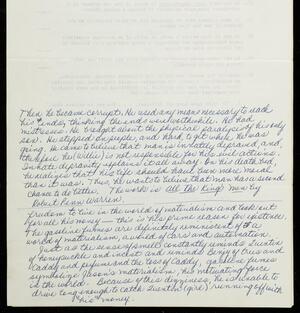 Then he became corrupt. He used any means necessary to reach
his ends, thinking the ends were worthwhile. He had
mistresses. He brought about the physical paralysis of his only
son. He stepped on people, and hard, to get where he was
going. He came to believe that man is innately depraved, and,
therefore he (Willie) is not responsible for his evil actions.
Innate depravity explains it all away. On his death bed,
he realizes that his life should have been more moral
than it was. Thus, he wants to believe that man has a second
chance to do better. The work is All the King's Men by
Robert Penn Warren.
freedom to live in the world of materialism and took out
for all his money — this is his prime reason for existence.
The gasoline fumes are definitely reminiscent of the
world of materialism, a world of cars and automation.
Just as the sense of smell constantly reminds Quentin
of honeysuckle and incest and reminds Benjy of trees and
Caddy and perfume and the loss of Caddy, gasoline fumes
symbolize Jason's materialism, his motivating force
in the world. Because of this dizziness, he is unable to
drive long enough to catch Quentin (girl) running off with
his money.